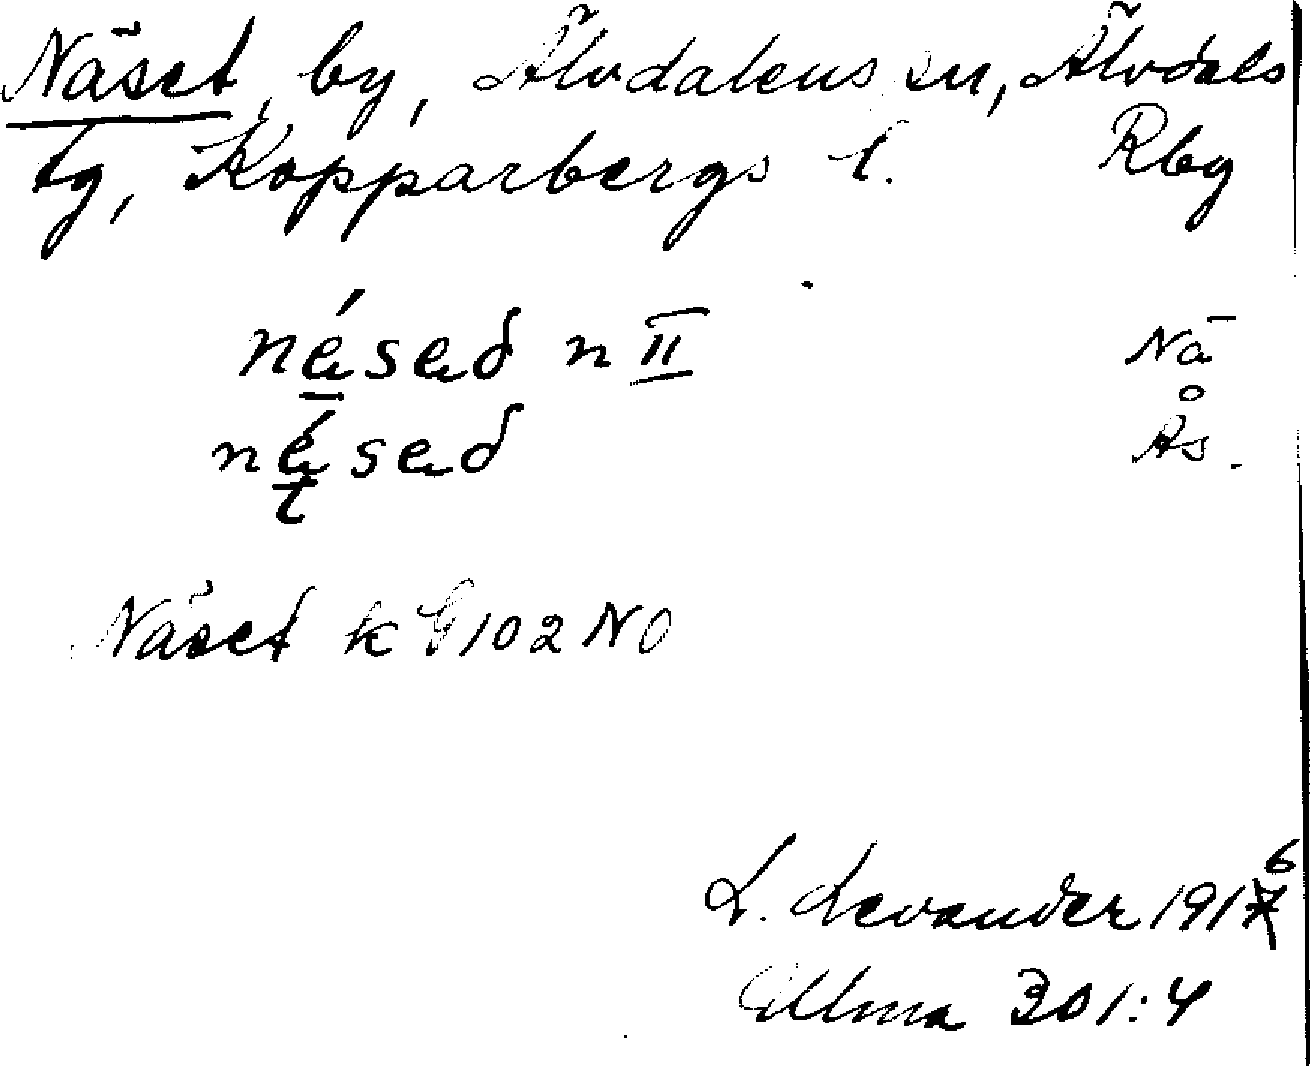 Näset, by, Älvdalens sn, Älvdals
tg, Kopparbergs l. Rbg
nésed n II Nä
nésed Ås.
Näset k G 102 NO
L. Levander 1916
Ulma 301:4